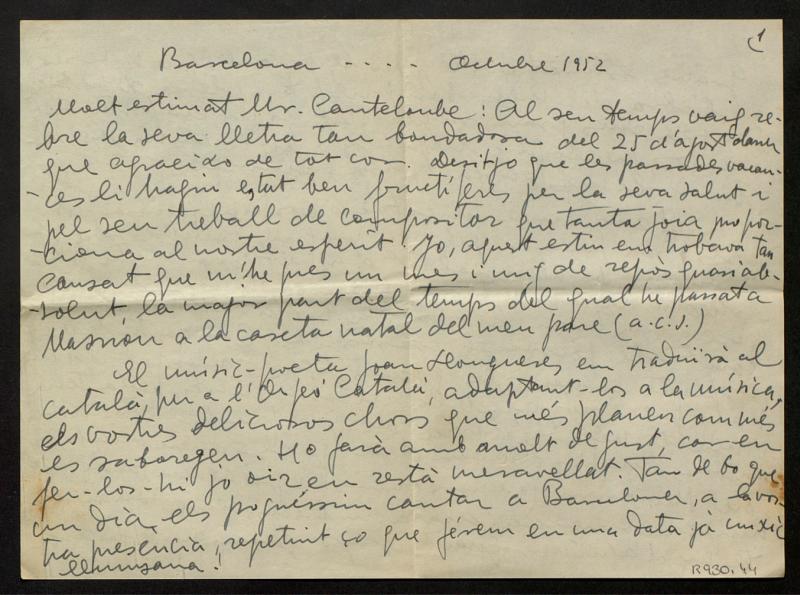 1
Barcelona .... Octubre 1952
Molt estimat Mr. Canteloube: Al seu temps vaig re-
bre la seva lletra tan bondadosa del 25 d'agost
que agraeixo de tot cor. Desitjo que les passades vacan-
-ces li hagin estat ben fructíferes per la seva salut i
pel seu treball de compositor que tanta joia propor-
-ciona al nostre esperit. Jo, aquest estiu em trobava tan
cansat que m'he pres un mes i mig de repòs quasi ab-
-solut, la major part del temps del qual he passat a
Massríon a la caseta natal del meu pare (a.c.s.)
El músic-poeta Joan Llongueres em traduirà al
català, per a l'Orfeó Català, adaptant-los a la música,
els vostres deliciosos chors que més planen com més
es saboregen. Ho farà amb molt de gust, car en
fer-los-hi jo oir en restà meravellat. Tan de bo que
un dia els poguéssim cantar a Barcelona, a la vos-
tra presència, repetint ço que férem en una data ja un xic
llunyana!
R930.44